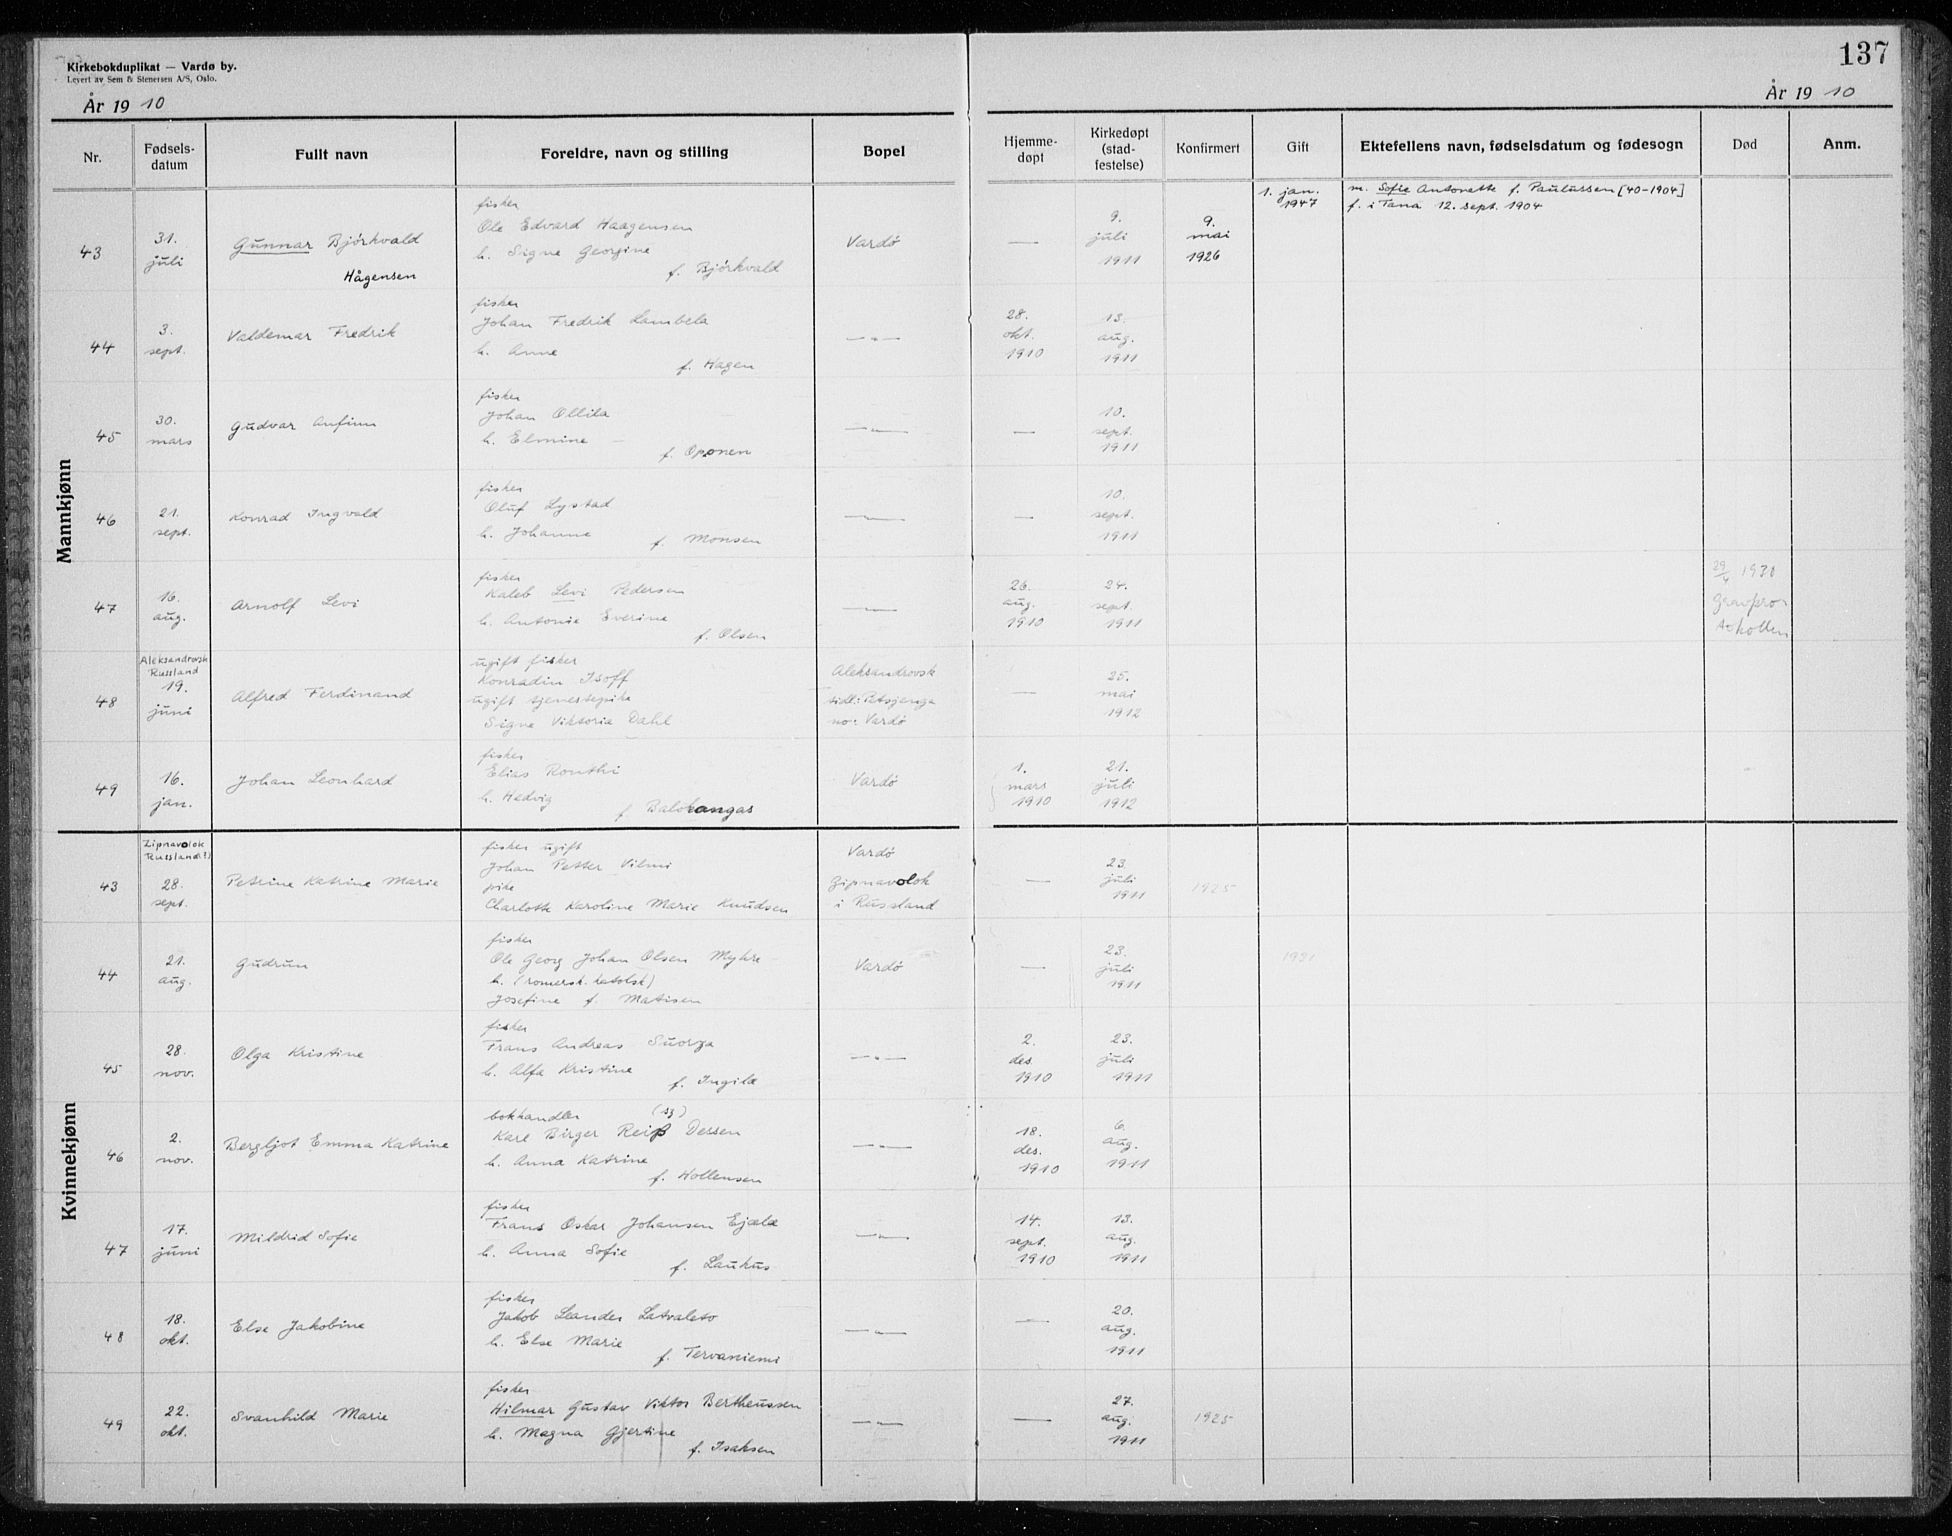 Kirkebokduplikat — Vardø by.
Levert av Sem & Stenersen A/S, Oslo.
137
År 19 10
År 19 10
Nr.
Fødsels-
datum
Fullt navn
Foreldre, navn og stilling
Bopel
Hjemme-
døpt
Kirkedøpt
(stad-
festelse)
Konfirmert
Gift
Ektefellens navn, fødselsdatum og fødesogn
Død
Anm.
Mannkjønn
43
31.
juli
Gunnar Bjørkvald
Hågensen
fisker
Ole Edvard Haagensen
h. Signe Georgine
f. Bjørkvald
Vardø
—
9.
juli
1911
9.
mai
1926
1. jan.
1947
m. Sofie Antonette f. Paulussen [40-1904]
f. i Tana 12. sept. 1904
44
3.
sept.
Valdemar Fredrik
fisker
Johan Fredrik Lambela
h. Anne
f. Hagen
— " —
28.
okt.
1910
13.
aug.
1911
45
30.
mars
Gudvar Anfinn
fisker
Johan Ollila
h. Elmine —
f. Oponen
— " —
—
10.
sept.
1911
46
21.
sept.
Konrad Ingvald
fisker
Oluf Lystad
h. Johanne
f. Monsen
— " —
—
10.
sept.
1911
47
16.
aug.
Arnolf Levi
fisker
Kaleb Levi Pedersen
h. Antonie Everine
f. Olsen
— " —
26.
aug.
1910
24.
sept.
1911
29/4 1931
48
Aleksandrovsk
Russland
19.
juni
Alfred Ferdinand
ugift fisker
Konradin Isoff
ugift tjenestepike
Signe Viktoria Dahl
Aleksandrovsk
tidl: Petsjenga
no: Vardø
—
25.
mai
1912
49
16.
jan.
Johan Leonhard
fisker
Elias Ronthi
h. Hedvig
f. Balokangas
Vardø
1.
mars
1910
21.
juli
1912
Kvinnekjønn
43
Zipnavolok
Russland(?)
28.
sept.
Petrine Katrine Marie
fisker ugift
Johan Petter Vilmi
pike
Charlotte Karoline Marie Knudsen
Vardø
Zipnavolok
i Russland
—
23.
juli
1911
1925
44
21.
aug.
Gudrun
fisker
Ole Georg Johan Olsen Myhre
h. (romersk. katolsk)
Josefine f. Matisen
Vardø
—
23.
juli
1911
1931
45
28.
nov.
Olga Kristine
fisker
Frans Andreas Suorza
h. Alfa Kristine
f. Ingilæ
— " —
2.
des.
1910
23.
juli
1911
46
2.
nov.
Bergljot Emma Katrine
bokhandler (sz)
Karl Birger Reiß Dessen
h. Anna Katrine
f. Hollensen
— " —
18.
des.
1910
6.
aug.
1911
47
17.
juni
Mildrid Sofie
fisker
Frans Oskar Johansen Ejala
h. Anna Sofie
f. Laukus
— " —
14.
sept.
1910
13.
aug.
1911
48
18.
okt.
Else Jakobine
fisker
Jakob Leander Latvaleto
h. Else Marie
f. Tervaniemi
— " —
—
20.
aug.
1911
49
22.
okt.
Svanhild Marie
fisker
Hilmar Gustav Viktor Bertheussen
h. Magna Gjertine
f. Isaksen
— " —
—
27.
aug.
1911
1925